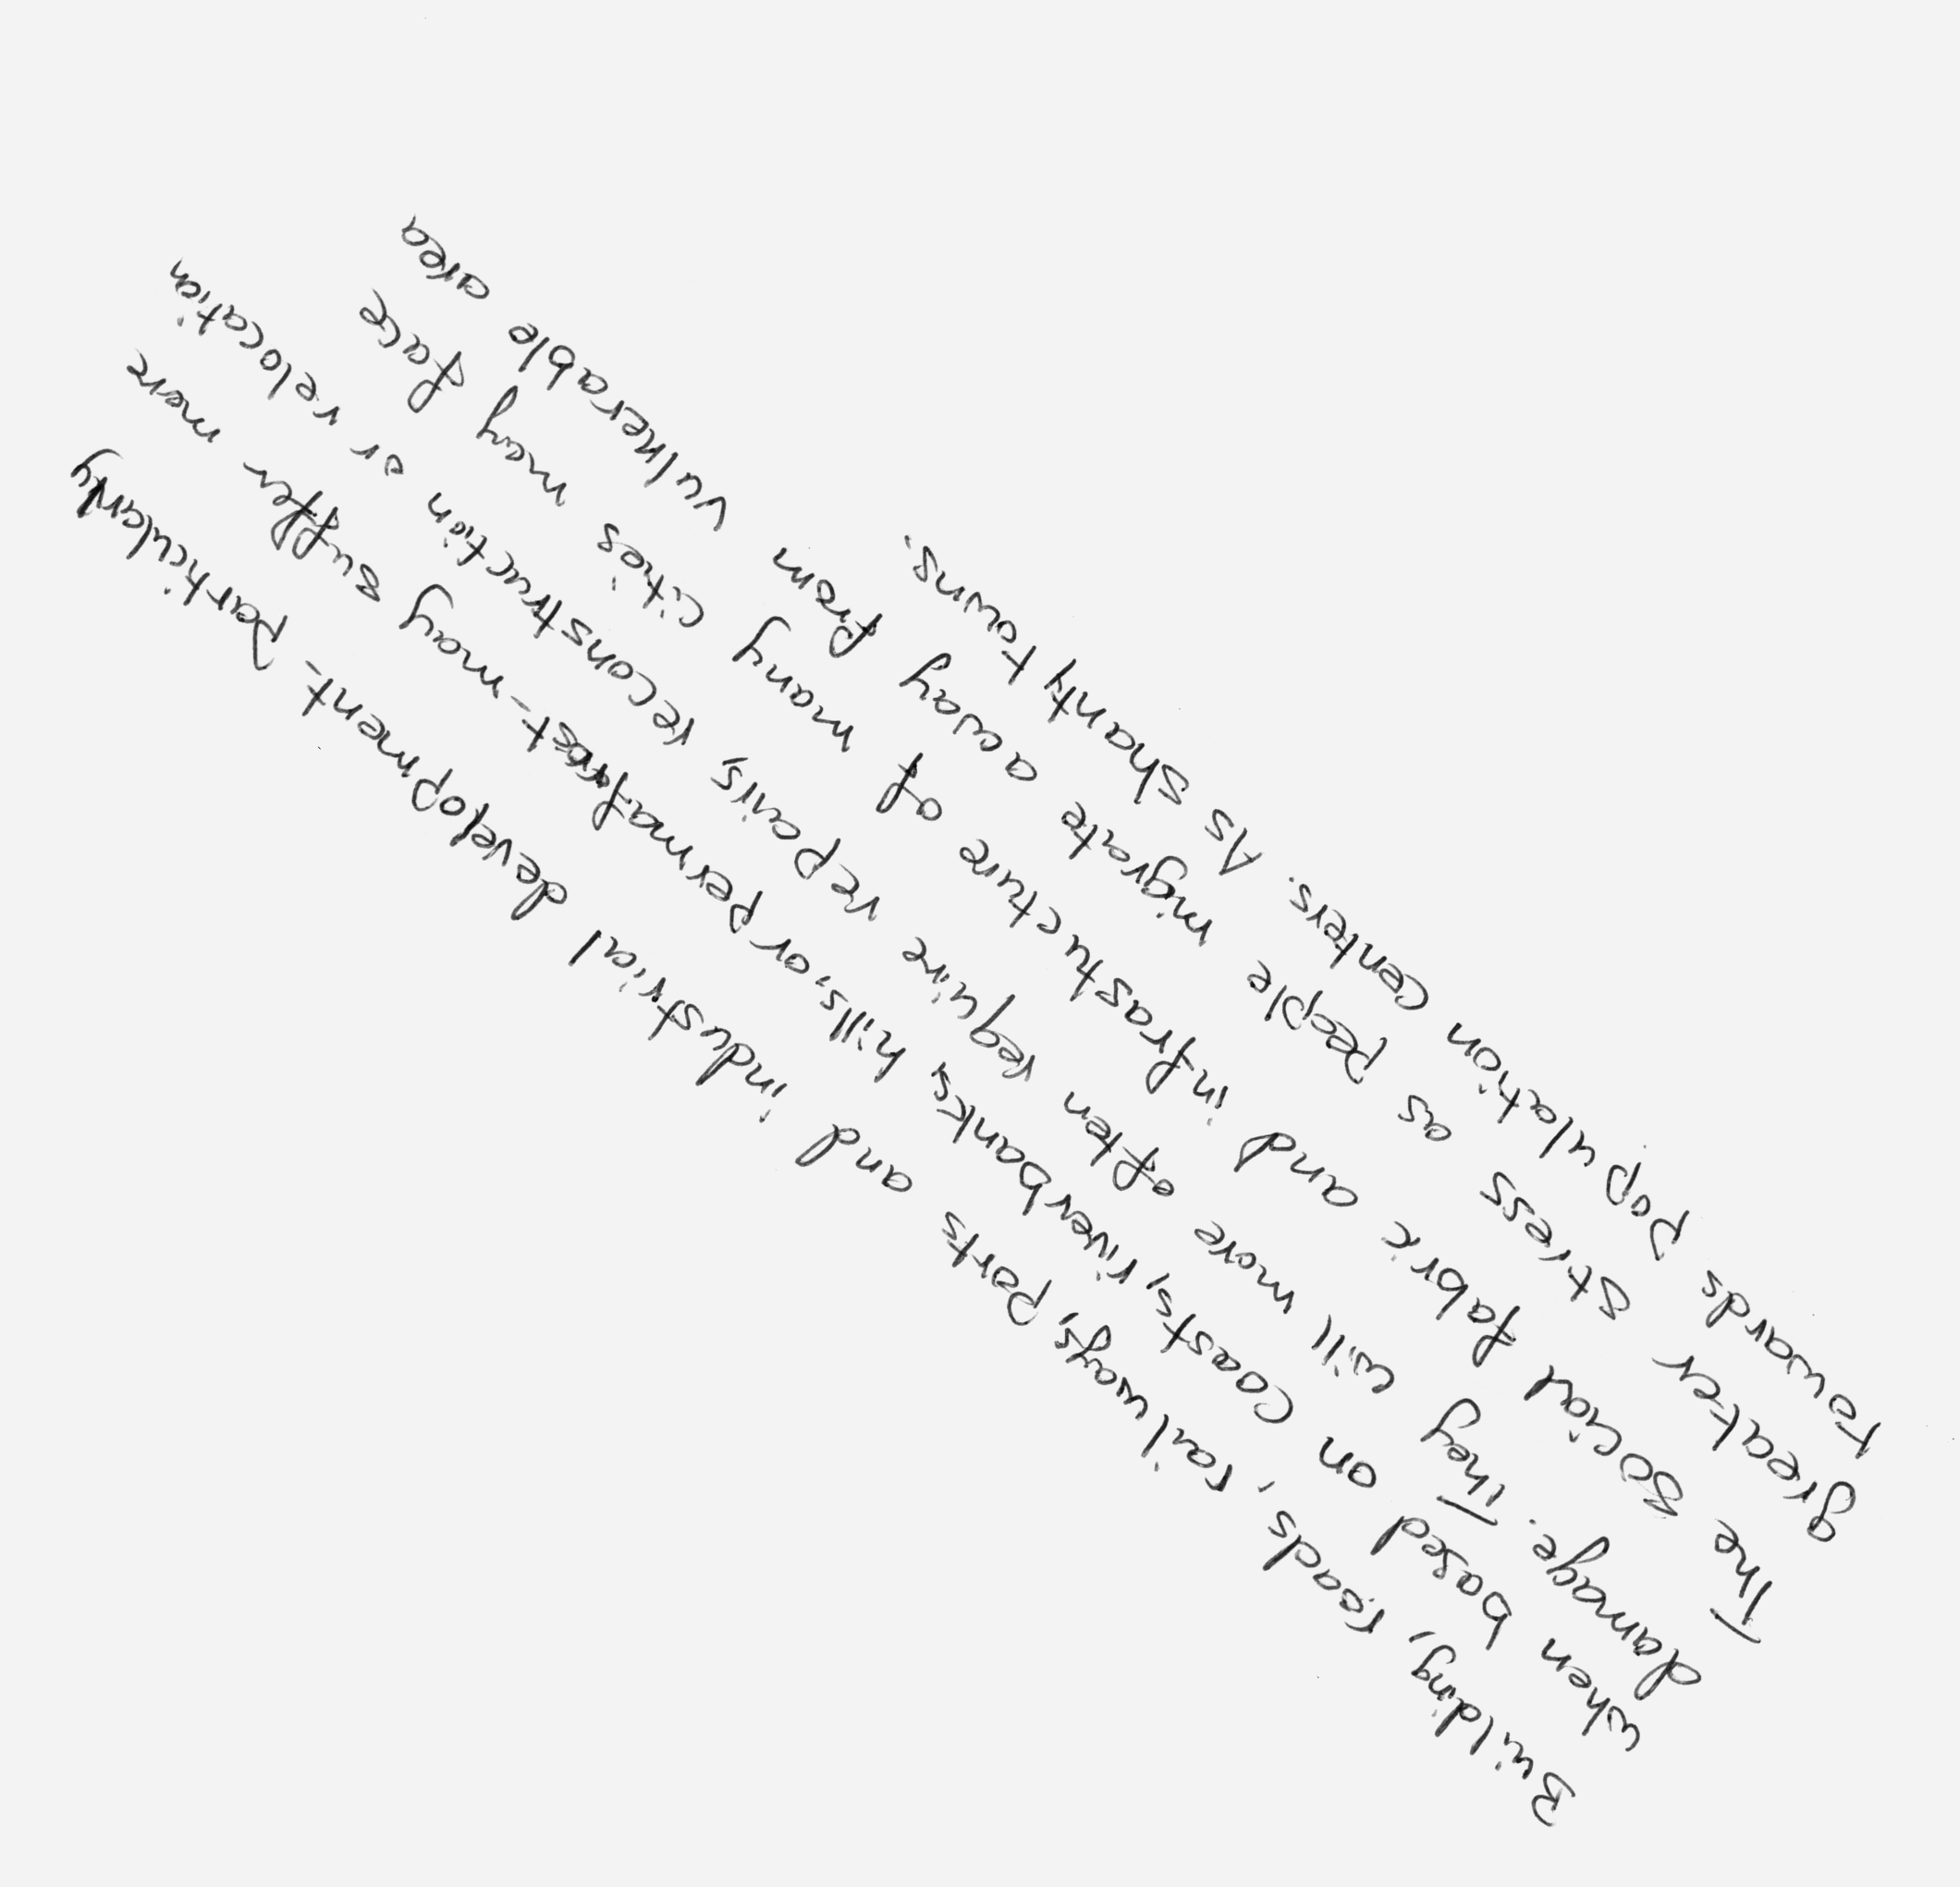 Building, roads, railways, Ports and industrial development- Particularly
when based on Coasts, riverbanks, hills, or permafrost-may suffer more
damage. They will more often require repairs, reconstruction or relocation
The Social fabric and infrastucture of many cities may face
greater stress as People migrate away from vulnerable area
towards Population Centers. As shanty towns.